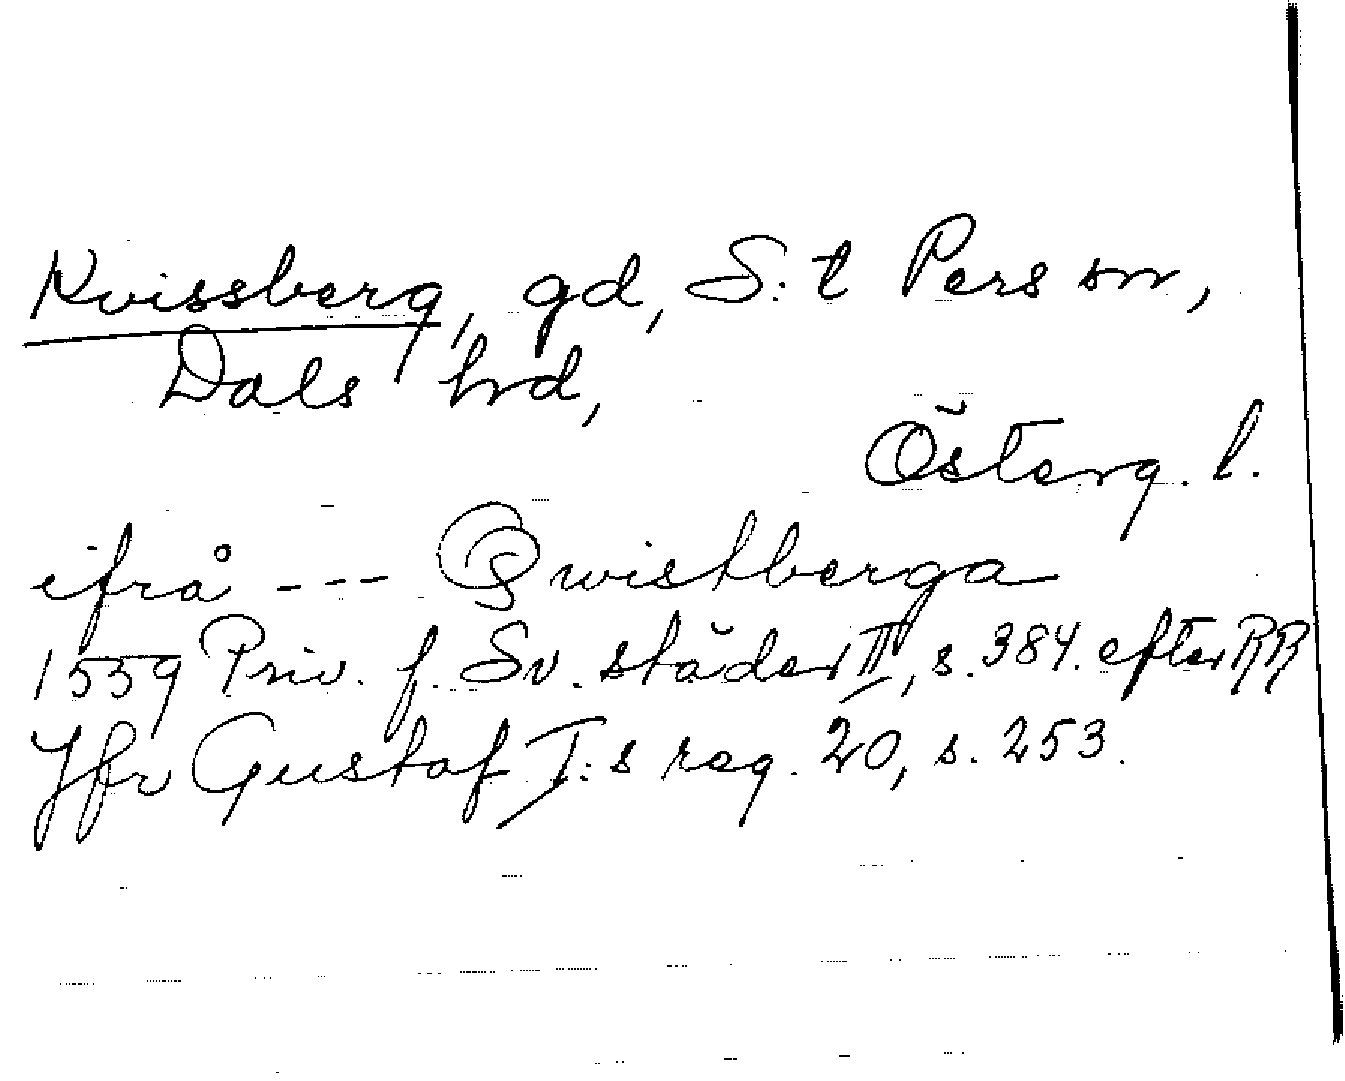 Kvissberg, gd, S:t Pers sn,
Dals hrd,
Österg. l.
ifrå --- Qwistberga
1559 Priv. f. Sv. städer II, s. 384. efter RR
Jfr Gustaf I:s reg. 20, s. 253.